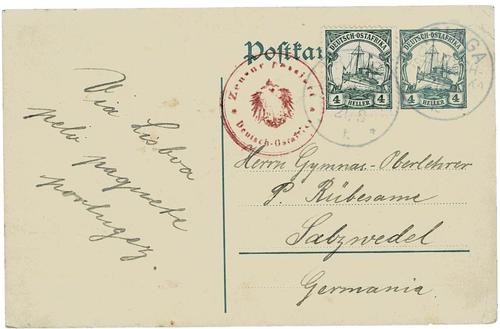 Postkar
DEUTSCH-OSTAFRIKA
4 HELLER 4
DEUTSCH-OSTAFRIKA
4 HELLER 4
Deutsch-Ostafrika
Via Lisboa
pelo paquete
portugez.
Herrn Gymnas-Oberlehrer
P. Rübesame
Salzwedel
Germania.